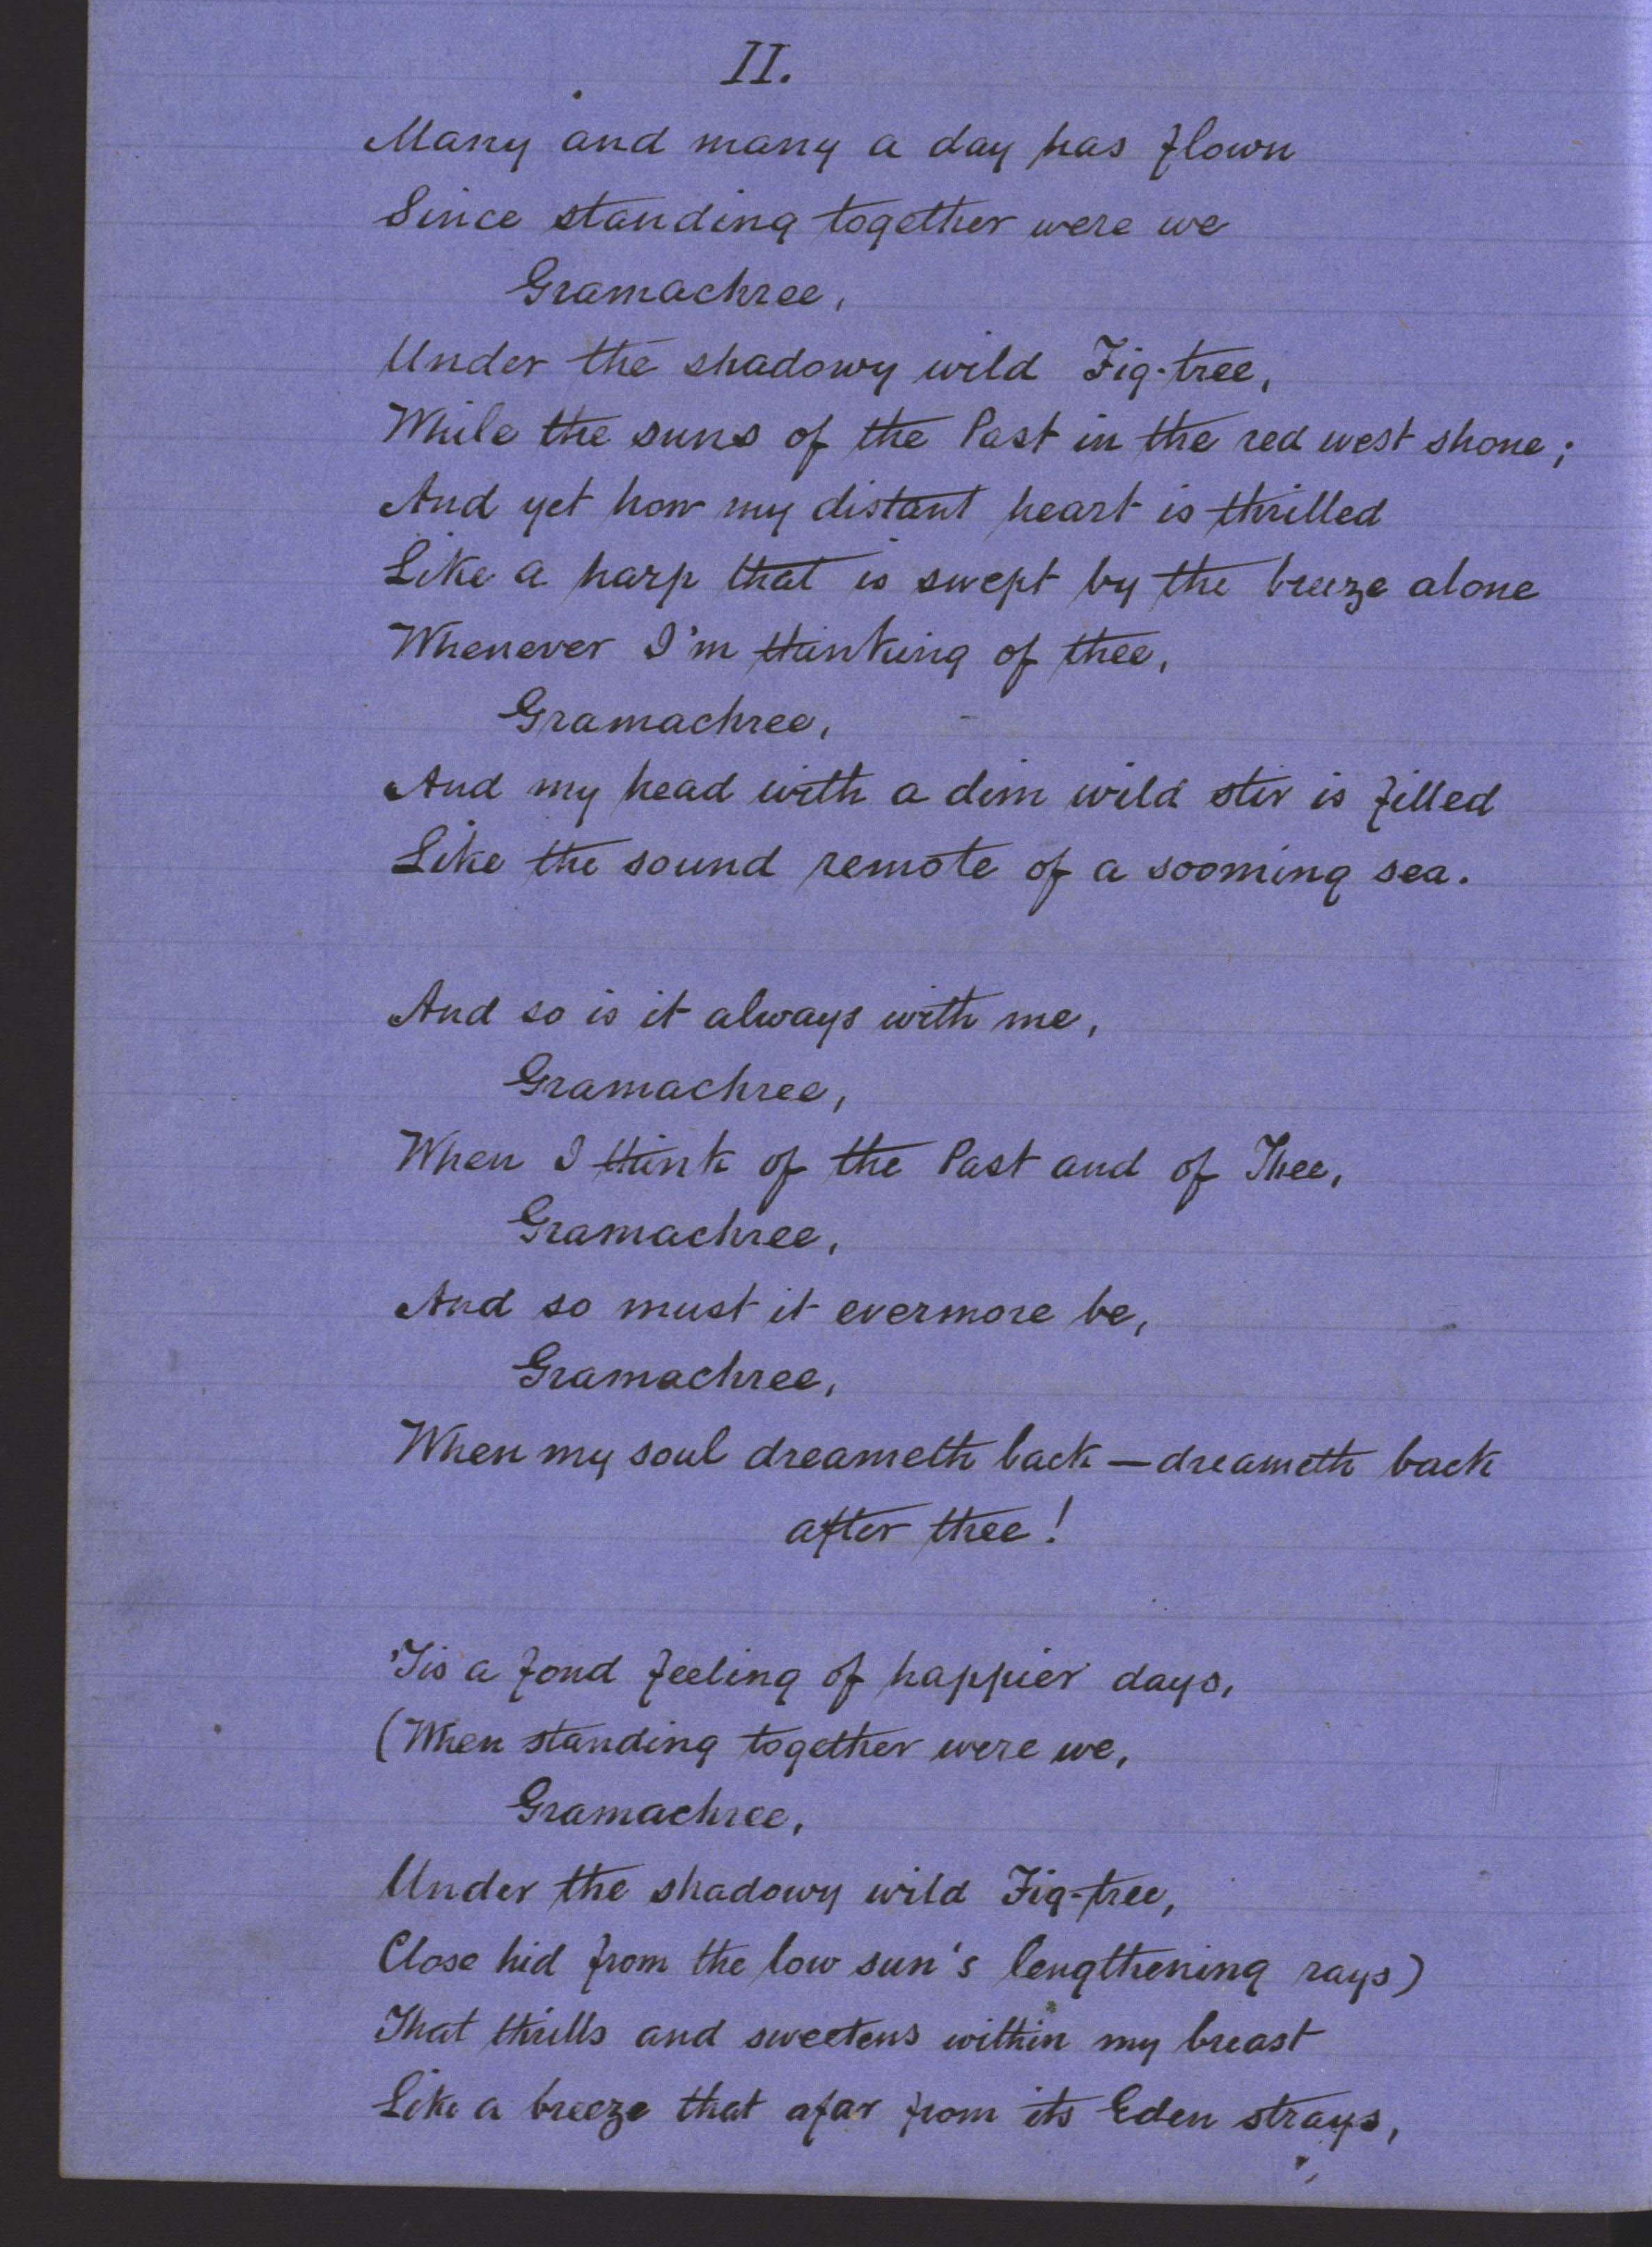 II.
Many and many a day has flown
Since standing together were we
Gramachree,
Under the shadowy wild Fig-tree,
While the suns of the Past in the red west shone;
And yet how my distant heart is thrilled
Like a harp that is swept by the breeze alone
Whenever I'm thinking of thee,
Gramachree,
And my head with a dim wild stir is filled
Like the sound remote of a sooming sea.
And so is it always with me,
Gramachree,
When I think of the Past and of Thee,
Gramachree,
And so must it evermore be,
Gramachree,
When my soul dreameth back — dreameth back
after thee!
'Tis a fond feeling of happier days,
(When standing together were we,
Gramachree,
Under the shadowy wild Fig-tree,
Close hid from the low sun's lengthening rays)
That thrills and sweetens within my breast
Like a breeze that afar from its Eden strays,